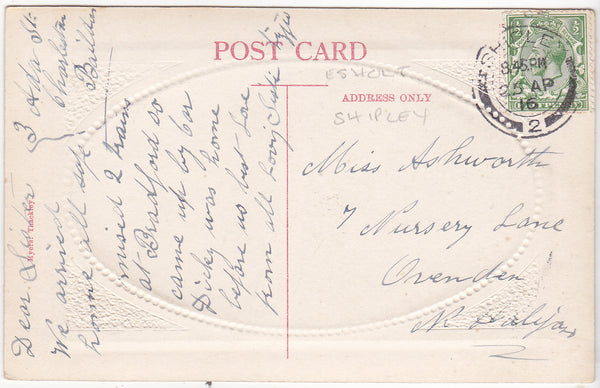 POST CARD
ADDRESS ONLY
ESHOLT
SHIPLEY
SHIPLEY
8.45 PM
25 AP
16
2
3 Ada St
Charlestown
Baildon
Dear Sister
We arrived
home all safe
missed 2 trams
at Bradford so
came up by car
Dicky was home
before us best love
from all
Miss Ashworth
7 Nursery Lane
Ovenden
Nr Halifax